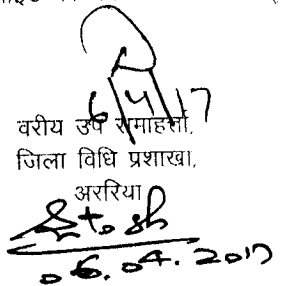 6/4/17
वरीय उप समाहर्ता,
जिला विधि प्रशाखा,
अररिया
06.04.2017